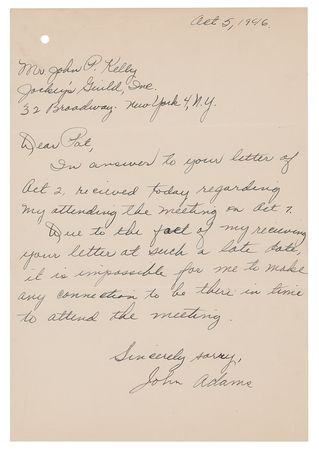 Oct 5, 1946.
Mr. John P. Kelly
Jockey's Guild, Inc.
32 Broadway. New York 4, N.Y.
Dear Pat,
In answer to your letter of
Oct 2, recieved today regarding
my attending the meeting on Oct 7.
Due to the fact of my receiving
your letter at such a late date,
it is impossible for me to make
any connection to be there in time
to attend the meeting.
Sincerely sorry,
John Adams